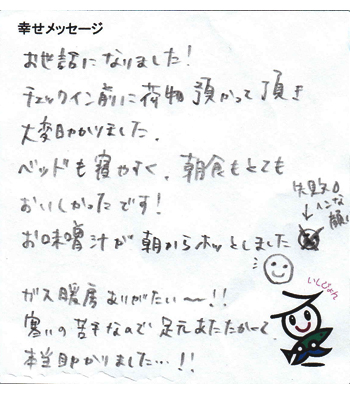 幸せメッセージ
お世話になりました！
チェックイン前に荷物預かって頂き
大変助かりました．
ベッドも寝やすく、朝食もとても
おいしかったです！
お味噌汁が朝からホッとしました
失敗。
ヘンな顔
ガス暖房ありがたい〜！！
寒いの苦手なので足元あたたかーくて
本当助かりました…！！
いしぴょん